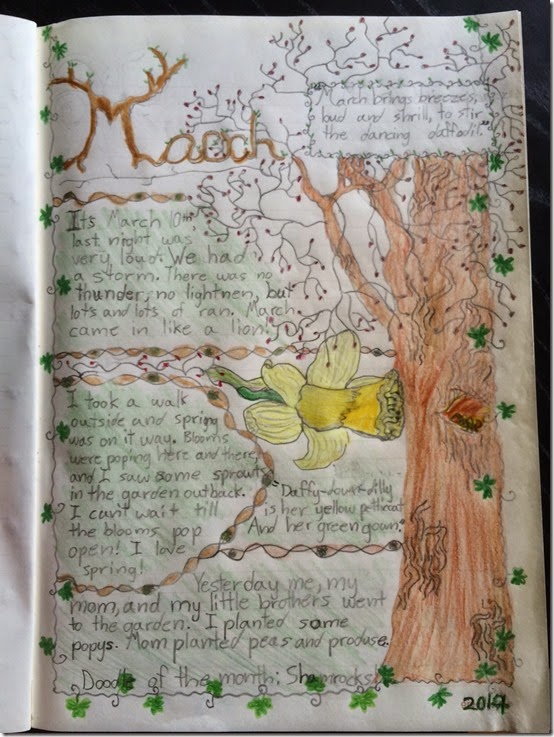 March
"March brings breezes,
loud and shrill, to stir
the dancing daffodil."
Its March 10th,
last night was
very loud. We had
a storm. There was no
thunder, no lightnen, but
lots and lots of ran. March
came in like a lion!
I took a walk
outside and spring
was on it way. Blooms
were poping here and there,
and I saw some sprouts
in the garden outback.
I can't wait till
the blooms pop
open! I love
spring!
"Daffy-down-dilly
is her yellow petticoat
And her green gown."
Yesterday me, my
mom, and my little brothers went
to the garden. I planted some
popys. Mom planted peas and produse.
Doodle of the month: Shamrocks!
2014